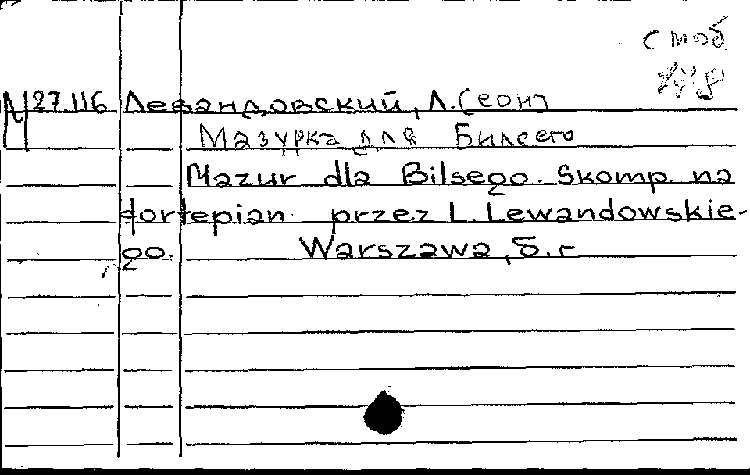 с моб
27.116 Левандовский, Л.[еон]
Мазурка для Билсего
Mazur dla Bilsego. Skomp. na
fortepian przez L. Lewandowskie-
go. Warszawa, б. г